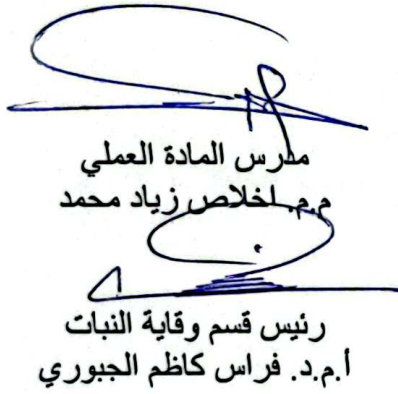 مدرس المادة العملي
م.م. اخلاص زياد محمد
رئيس قسم وقاية النبات
أ.م.د. فراس كاظم الجبوري